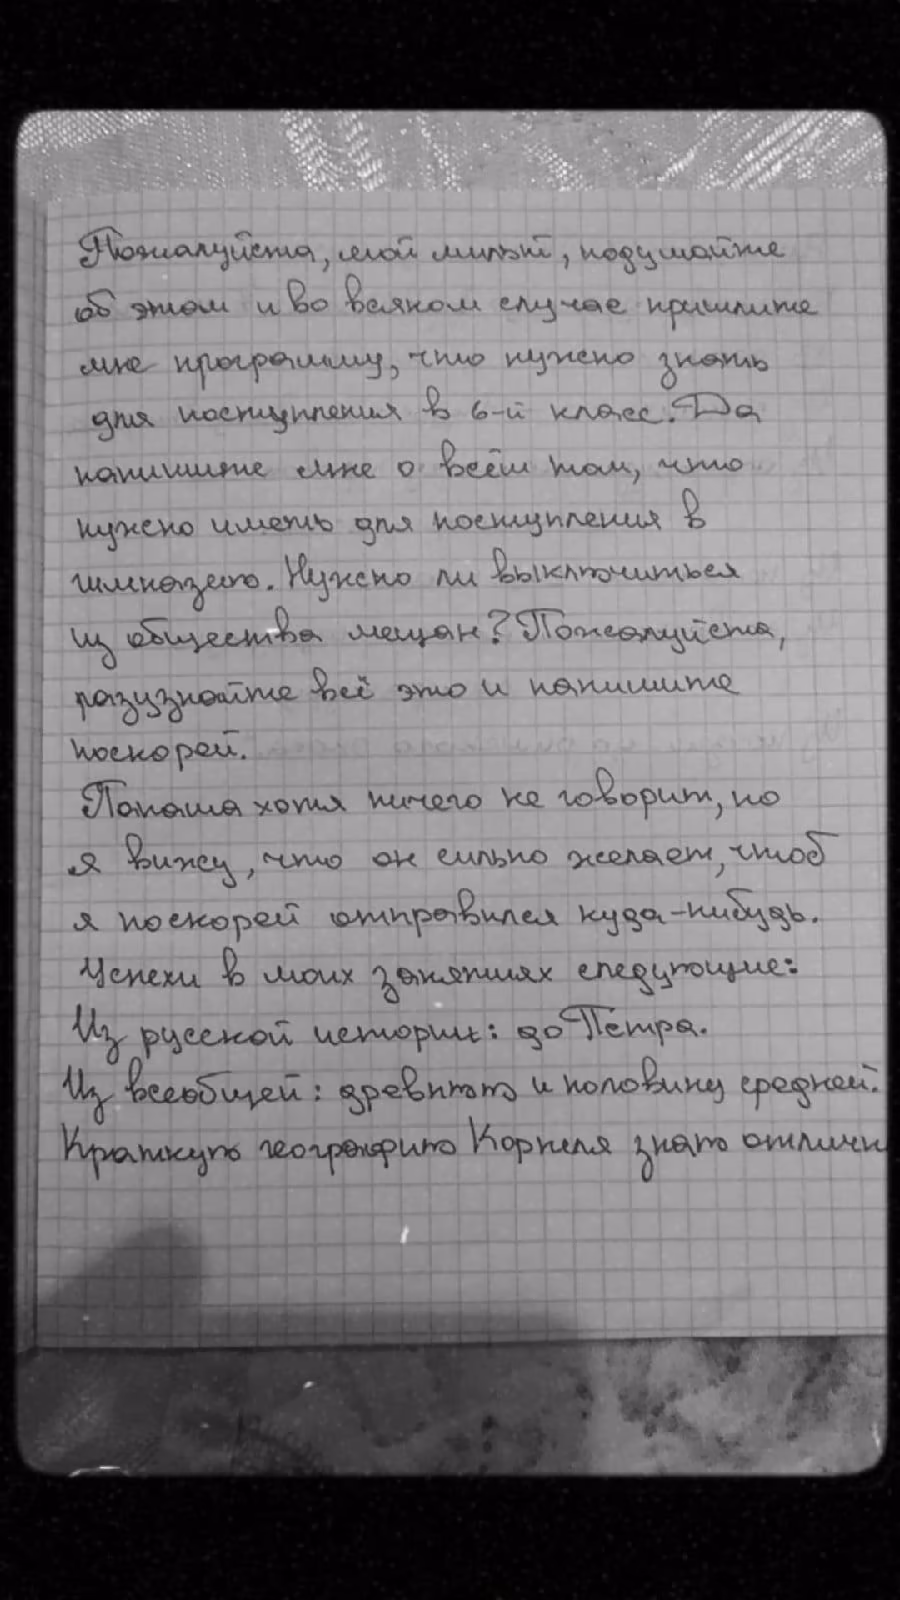 Пожалуйста, мой милый, подумайте
об этом и во всяком случае пришлите
мне программу, что нужно знать
для поступления в 6-й класс. Да
напишите мне о всём том, что
нужно иметь для поступления в
гимназею. Нужно ли выключиться
из общества мещан? Пожалуйста,
разузнайте всё это и напишите
поскорей.
Папаша хотя ничего не говорит, но
я вижу, что он сильно желает, чтоб
я поскорей отправился куда-нибудь.
Успехи в моих занятиях следующие:
Из русской истории: до Петра.
Из всеобщей: древнюю и половину средней.
Краткую географию Корнеля знаю отличн